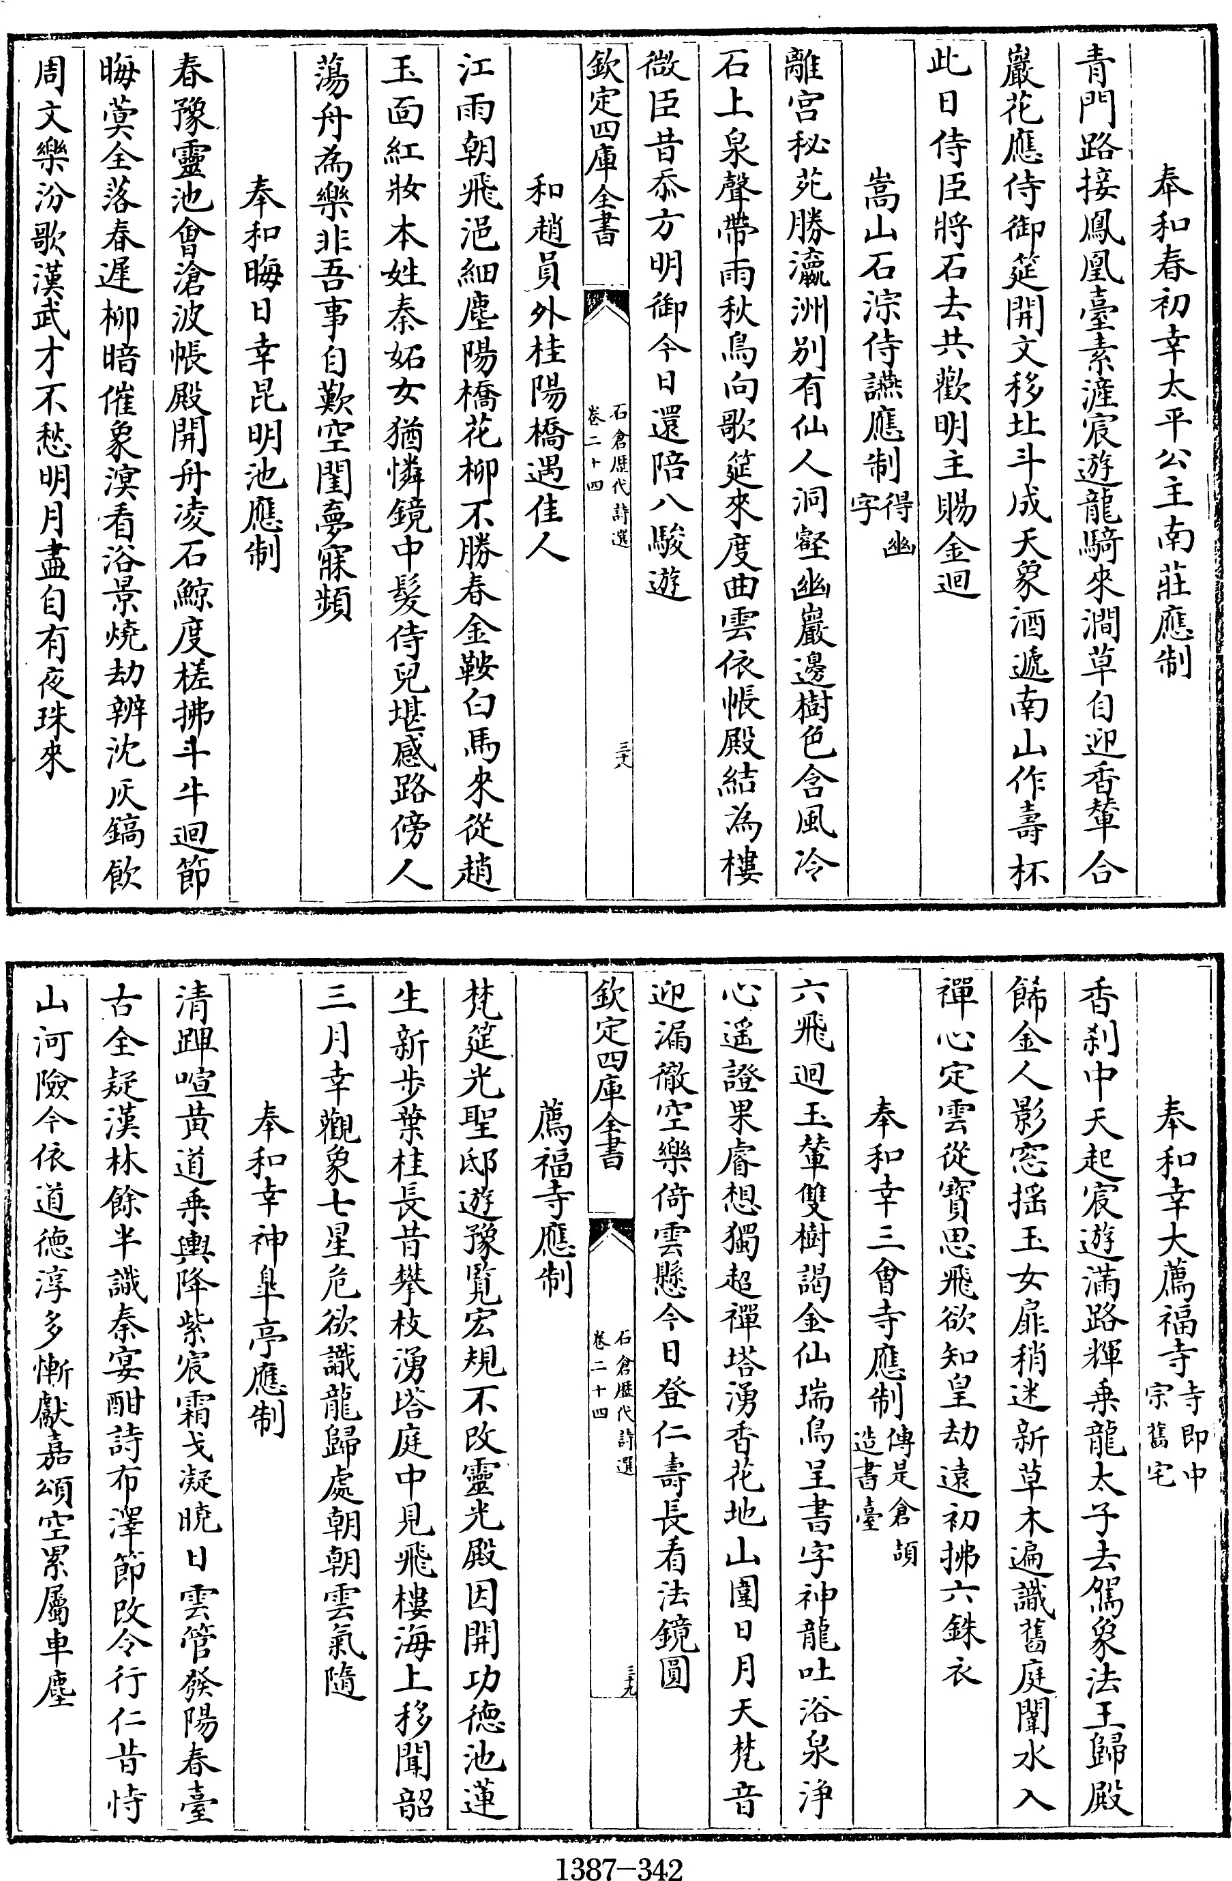 奉和春初幸太平公主南莊應制
青門路接鳳凰臺素滻宸遊龍騎來澗草自迎香輦合
巖花應侍御筵開文移北斗成天象酒遞南山作壽杯
此日侍臣將石去共歡明主賜金迴
嵩山石淙侍讌應制得幽字
離宮秘苑勝瀛洲別有仙人洞壑幽巖邊樹色含風冷
石上泉聲帶雨秋鳥向歌筵來度曲雲依帳殿結為樓
微臣昔忝方明御今日還陪八駿遊
欽定四庫全書
石倉歷代詩選
卷二十四
三十八
和趙員外桂陽橋遇佳人
江雨朝飛浥細塵陽橋花柳不勝春金鞍白馬來從趙
玉面紅妝本姓秦妬女猶憐鏡中髮侍兒堪感路傍人
蕩舟為樂非吾事自歎空閨夢寐頻
奉和晦日幸昆明池應制
春豫靈池會滄波帳殿開舟凌石鯨度槎拂斗牛迴節
晦蓂全落春遲柳暗催象溟看浴景燒劫辨沈灰鎬飲
周文樂汾歌漢武才不愁明月盡自有夜珠來
奉和幸大薦福寺寺即中宗舊宅
香刹中天起宸遊滿路輝乗龍太子去駕象法王歸殿
飾金人影窓摇玉女扉稍迷新草木遍識舊庭闈水入
禪心定雲從寳思飛欲知皇劫遠初拂六銖衣
奉和幸三會寺應制傳是倉頡造書臺
六飛迴玉輦雙樹謁金仙瑞鳥呈書字神龍吐浴泉淨
心遥證果睿想獨超禪塔湧香花地山圍日月天梵音
迎漏徹空樂倚雲懸今日登仁壽長看法鏡圓
欽定四庫全書
石倉歷代詩選
卷二十四
三十九
薦福寺應制
梵筵光聖邸遊豫覧宏規不改靈光殿因開功德池蓮
生新步葉桂長昔攀枝湧塔庭中見飛樓海上移聞韶
三月幸觀象七星危欲識龍歸處朝朝雲氣隨
奉和幸神臯亭應制
清蹕喧黃道乗輿降紫宸霜戈凝曉日雲管發陽春臺
古全疑漢林餘半識秦宴酣詩布澤節改令行仁昔恃
山河險今依道德淳多慚獻嘉頌空累屬車塵
1387-342